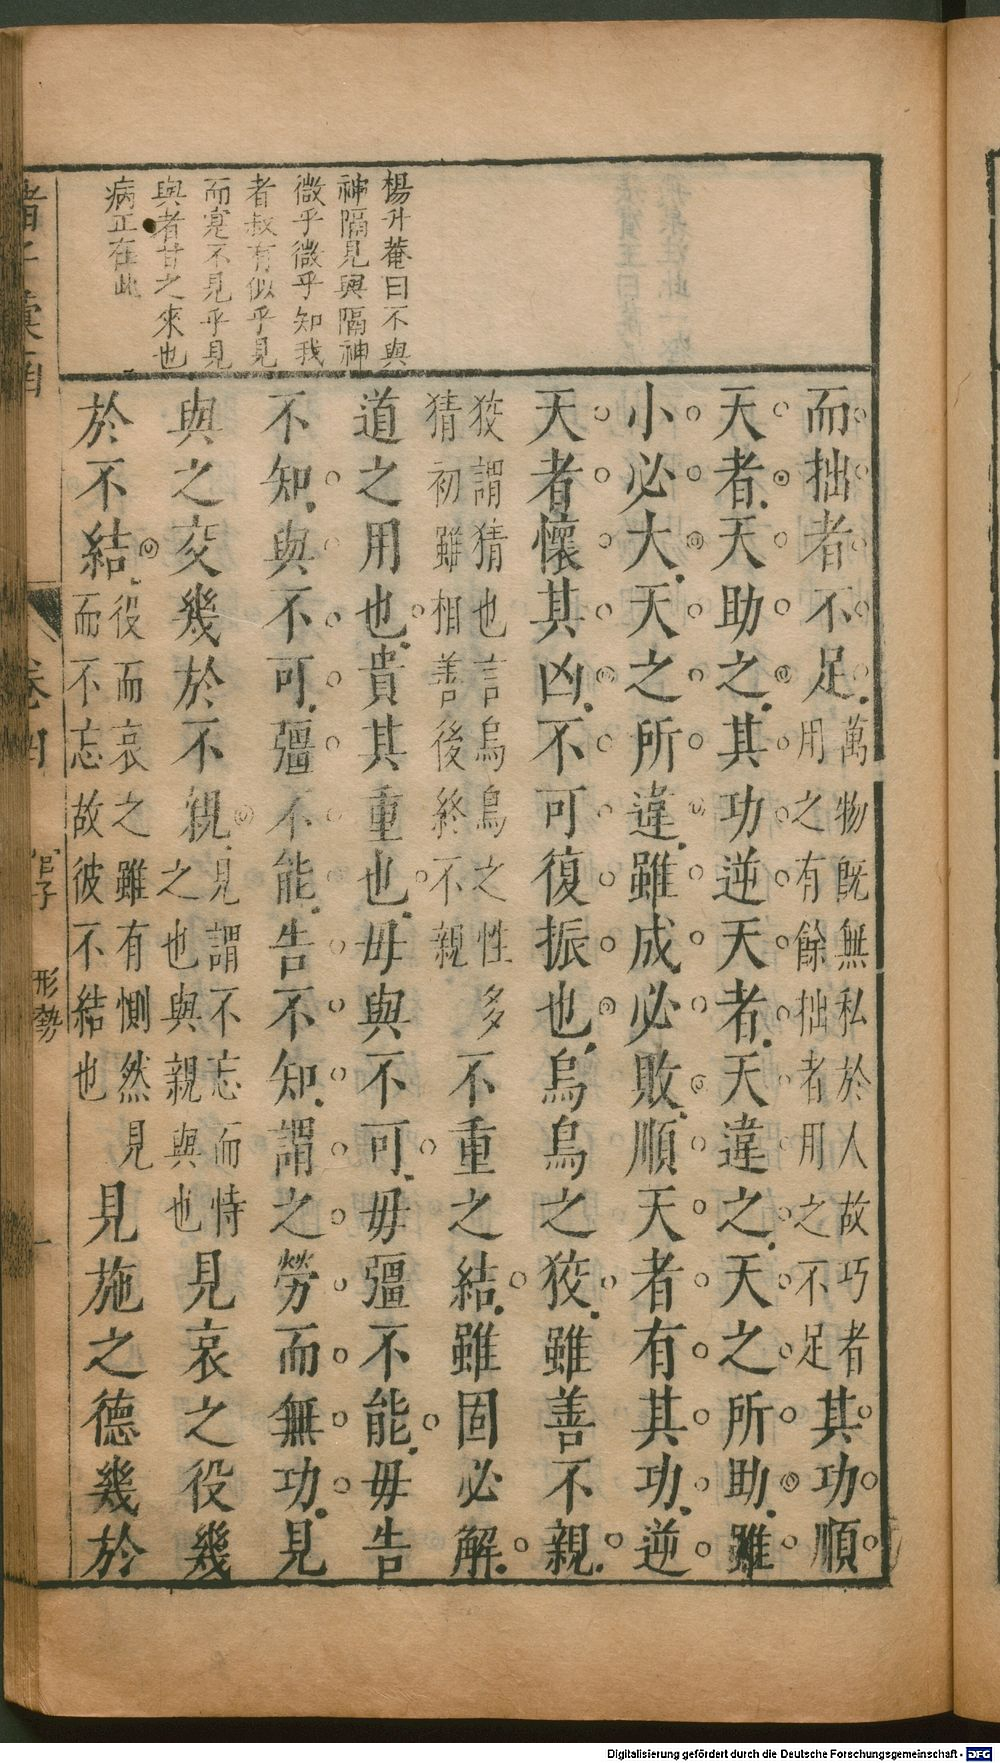 楊升菴曰不與
神隔見與隔神
微乎微乎知我
者叔有似乎見
而寔不見乎見
與者甘之來也
病正在此
而拙者不足萬物既無私於人故巧者用之有餘拙者用之不足其功順
天者天助之其功逆天者天違之天之所助雖
小必大天之所違雖成必敗順天者有其功逆
天者懷其凶不可復振也烏烏之狡雖善不親
狡謂猜也言烏鳥之性多猜初雖相善後終不親不重之結雖固必解
道之用也貴其重也毋與不可毋彊不能毋告
不知與不可彊不能告不知謂之勞而無功見
與之交幾於不親見謂不忘而恃之也與親與也見哀之役幾
於不結役而哀之雖有惻然見而不忘故彼不結也見施之德幾於
諸子彙函
卷四
管子
形勢
一
Digitalisierung gefördert durch die Deutsche Forschungsgemeinschaft - DFG